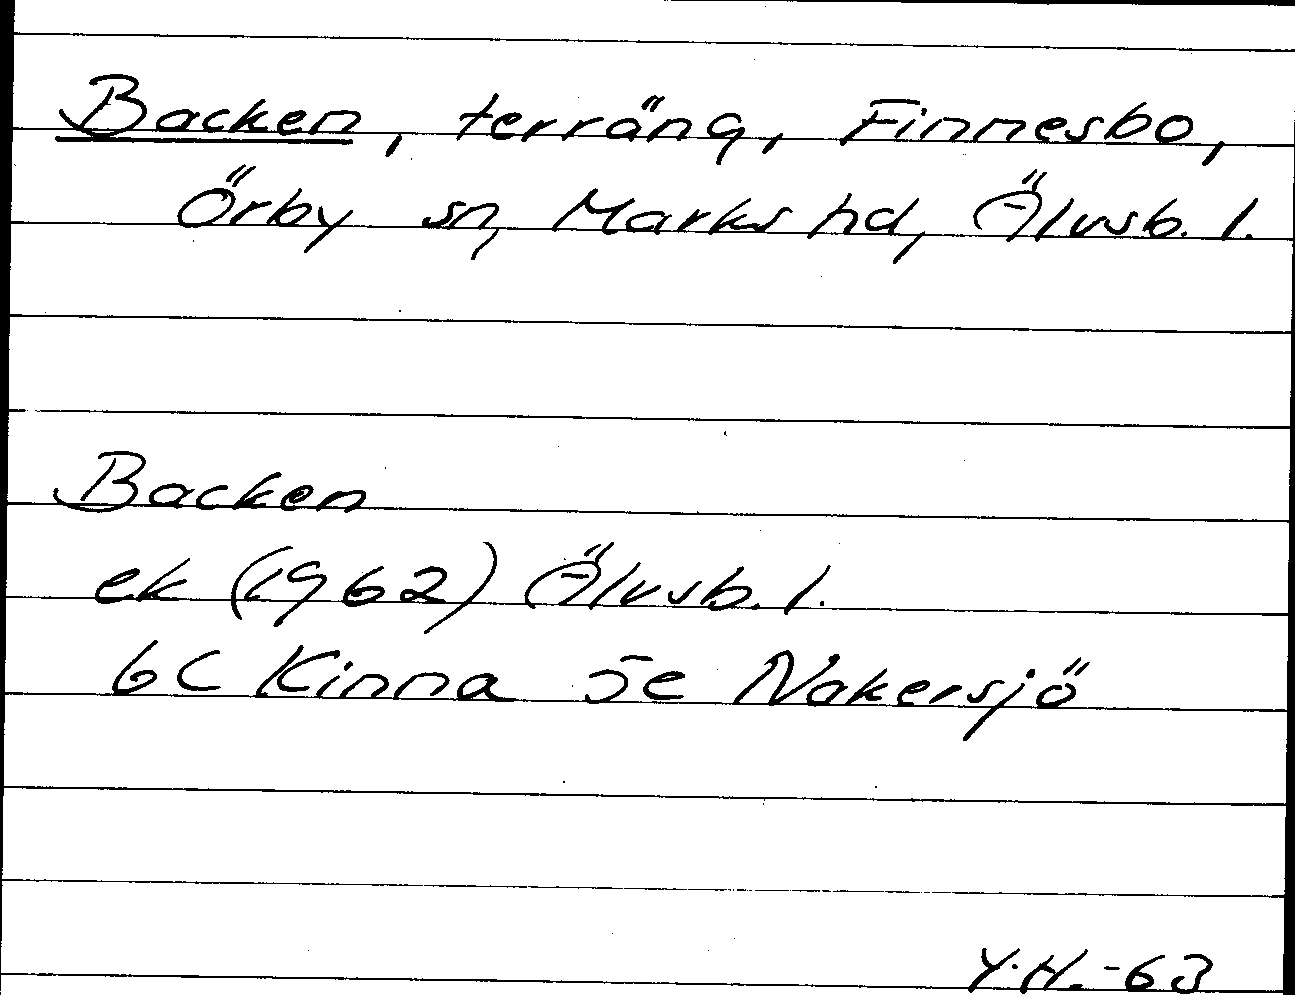 Backen, terräng, Finnesbo,
Örby sn, Marks hd, Älvsb. l.
Backen
ek (1962) Älvsb. l.
6C Kinna 5e Nakersjö
Y.H. -63